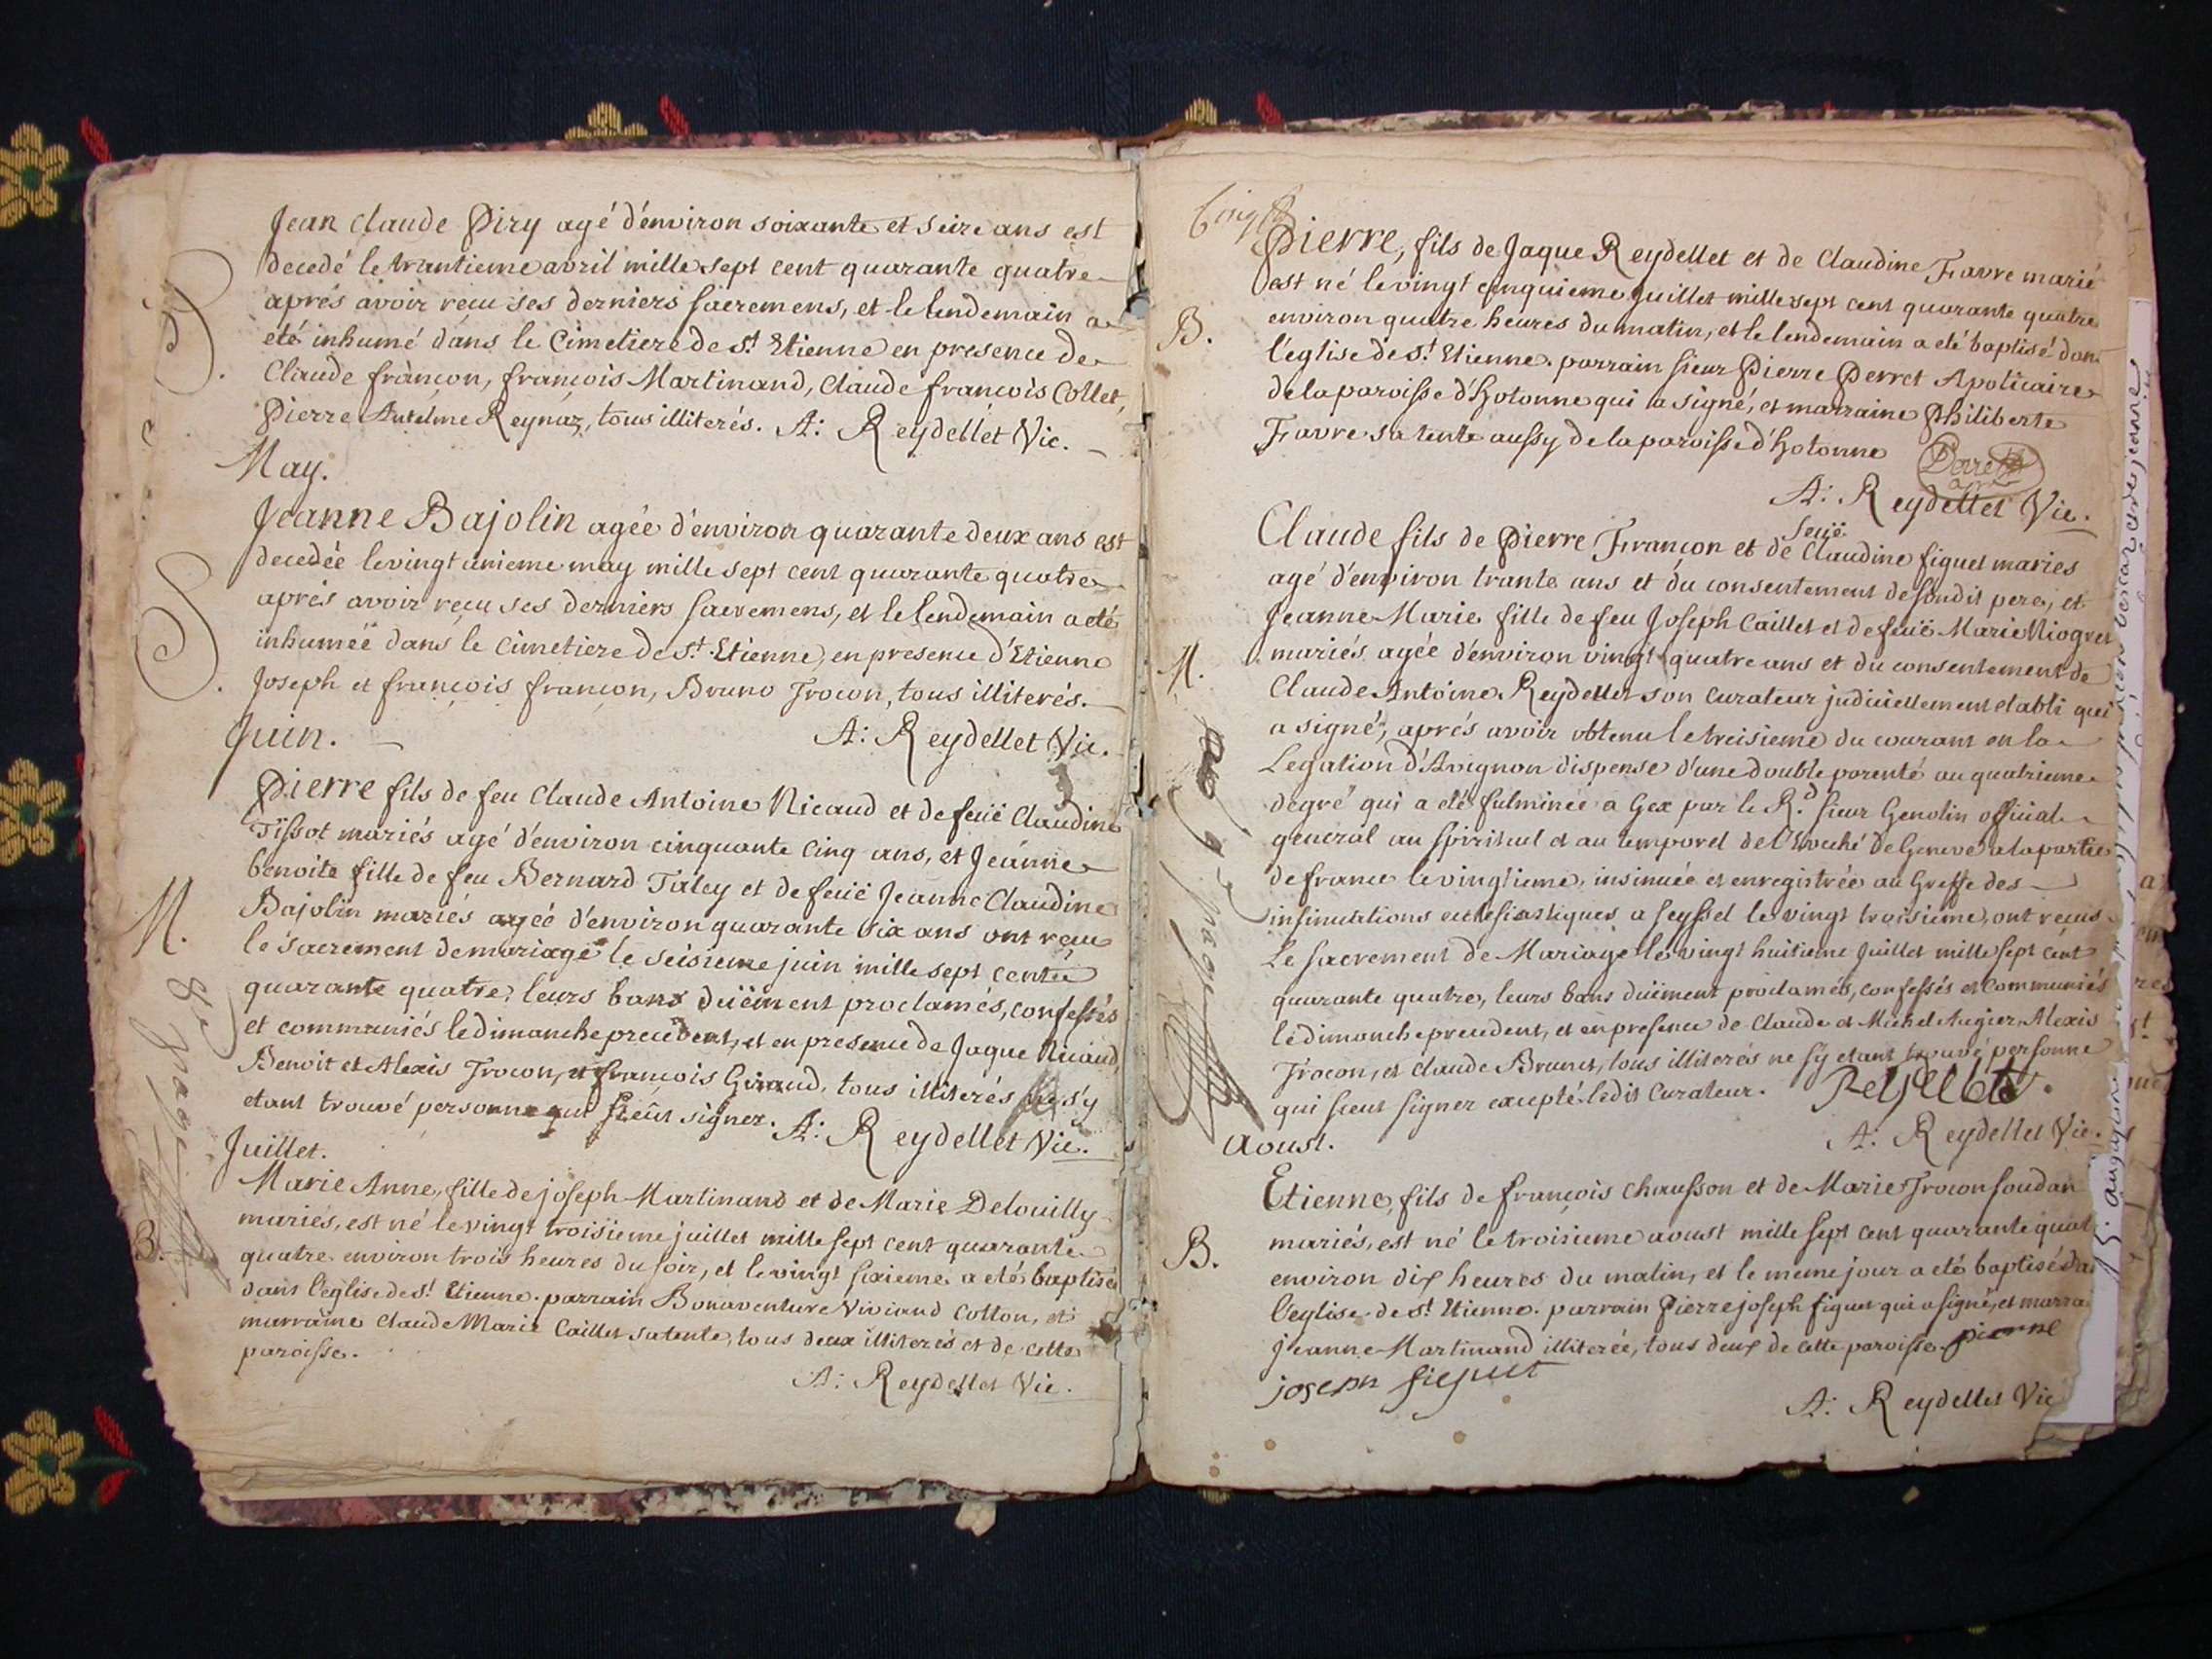 Jean Claude Piry agé d'environ soixante et seize ans est
decedé le trantieme avril mille sept cent quarante quatre
aprés avoir reçu ses derniers sacremens, et le lendemain a
S.
été inhumé dans le Cimetiere de St. Etienne en presence de
Claude françon, françois Martinand, Claude françois Collet,
Pierre Antelme Reynaz, tous illiterés. A: Reydellet Vic.
May.
Jeanne Bajolin agée d'environ quarante deux ans est
decedée le vingt unieme may mille sept cent quarante quatre
aprés avoir reçu ses derniers sacremens, et le lendemain a eté
S.
inhumée dans le Cimetiere de St. Etienne, en presence d'Etienne
Joseph et françois françon, Bruno Trocon, tous illiterés.
A: Reydellet Vic.
Juin.
Pierre fils de feu Claude Antoine Nicaud et de feüe Claudine
Tissot mariés agé d'environ cinquante cinq ans, et Jeanne
benoite fille de feu Bernard Taley et de feüe Jeanne Claudine
M.
Bajolin mariés agéé d'environ quarante six ans ont reçu
le sacrement de mariage le seisieme juin mille sept cent
quarante quatre, leurs bans düement proclamés, confessés
et communiés le dimanche precedent, et en presence de Jaque Nicaud,
Benoit et Alexis Trocon, et françois Giraud, tous illiterés ne s'y
etant trouvé personne qui sceût signer. A: Reydellet Vic.
page
Juillet.
Marie Anne, fille de joseph Martinand et de Marie Delouilly
mariés, est né le vingt troisieme juillet mille sept cent quarante
B.
quatre environ trois heures du soir, et le vingt sixieme a eté baptisée
dans l'eglise de St. Etienne. parrain Bonaventure Viviand Cotton, et
marraine Claude Marie Caillet sa tente, tous deux illiterés et de cette
paroisse.
A: Reydellet Vic.
Pierre, fils de Jaque Reydellet et de Claudine Favre marié
est né le vingt cinquieme juillet mille sept cent quarante quatre
B.
environ quatre heures du matin, et le lendemain a eté baptisé dans
l'eglise de St. Etienne. parrain sieur Pierre Perret Apoticaire
de la paroisse d'hotonne qui a signé, et marraine Philiberte
Favre sa tente aussy de la paroisse d'hotonne
Perret
A: Reydellet Vic.
feüe
Claude fils de Pierre Françon et de Claudine figuet maries
agé d'environ trante ans et du consentement de sondit pere, et
Jeanne Marie fille de feu Joseph Caillet et de feüe Marie Niogret
M.
mariés agéé d'environ vingt quatre ans et du consentement de
Claude Antoine Reydellet son curateur judiciellement etabli qui
a signé, aprés avoir obtenu le treisieme du courant en la
Legation d'Avignon dispense d'une double parenté au quatrieme
degré qui a eté fulminée a Gex par le Rd. sieur Genolin official
general au spirituel et au temporel de l'Eveché de Geneve a la partie
de france le vingtieme, insinuée et enregistrée au Greffe des
insinuations ecclesiastiques a seyssel le vingt troisieme, ont reçus
Le sacrement de Mariage le vingt huitieme juillet mille sept cent
quarante quatre, leurs bans düement proclamés, confessés et Communiés
le dimanche precedent, et en presence de Claude et Michel Augier, Alexis
Trocon, et Claude Brunet, tous illiterés ne s'y etant trouvé personne
qui sceut signer excepté ledit Curateur. Reydellet.
A: Reydellet Vic.
page
Aoust.
Etienne, fils de françois Chausson et de Marie Trocon soudan
mariés, est né le troisieme aoust mille sept cent quarante quat
B.
environ dix heures du matin, et le meme jour a eté baptisé da
l'eglise de St. Etienne. parrain Pierre joseph figuet qui a signé, et marra
jeanne Martinand illiterée, tous deux de cette paroisse. pierre
joseph figuet
A: Reydellet Vic